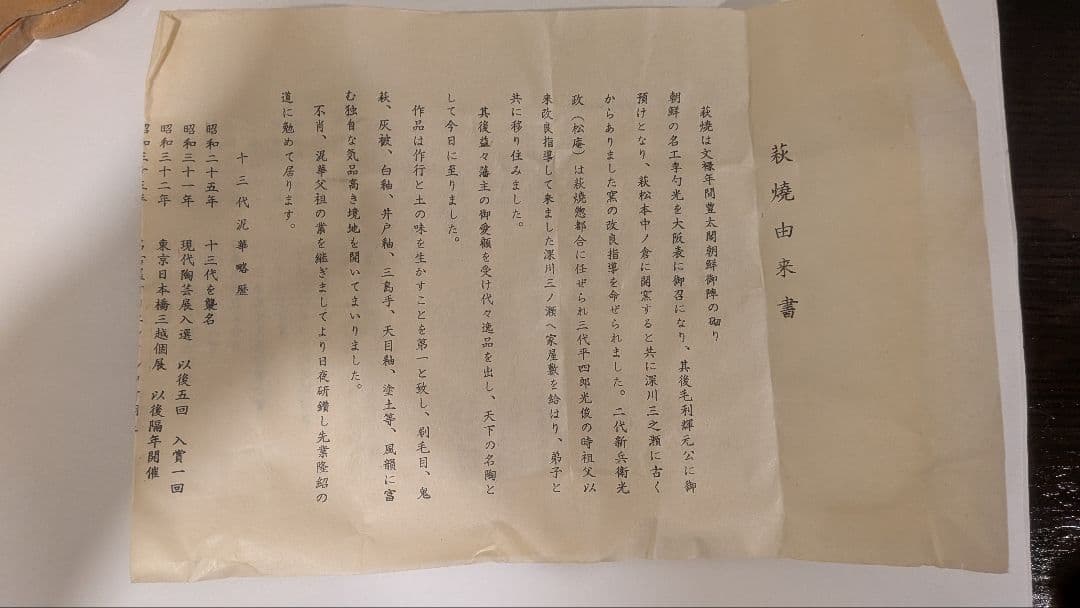 萩燒由来書
萩燒は文祿年間豊太閤朝鮮御陣の砌り
朝鮮の名工李勺光を大阪表に御召になり、其後毛利輝元公に御
預けとなり、萩松本中ノ倉に開窯すると共に深川三之瀬に古く
からありました窯の改良指導を命ぜられました。二代新兵衛光
政（松庵）は萩燒惣都合に任ぜられ三代平四郎光俊の時祖父以
来改良指導して来ました深川三ノ瀬へ家屋敷を給はり、弟子と
共に移り住みました。
其後益々藩主の御愛顧を受け代々逸品を出し、天下の名陶と
して今日に至りました。
作品は作行と土の味を生かすことを第一と致し、刷毛目、鬼
萩、灰被、白釉、井戸釉、三島手、天目釉、塗土等、風韻に富
む独自な気品高き境地を開いてまいりました。
不肖、泥華父祖の業を継ぎましてより日夜研鑽し先業隆紹の
道に勉めて居ります。
十三代泥華略歴
昭和二十五年 十三代を襲名
昭和三十一年 現代陶芸展入選 以後五回 入賞一回
昭和三十二年 東京日本橋三越個展 以後隔年開催
昭和三十三年